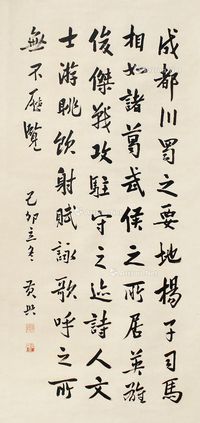 成都川蜀之要地楊子司馬
相如諸葛武侯之所居英雄
俊傑戰攻駐守之迹詩人文
士游眺飲射賦詠歌呼之所
無不歷覽
己卯立冬 黃興